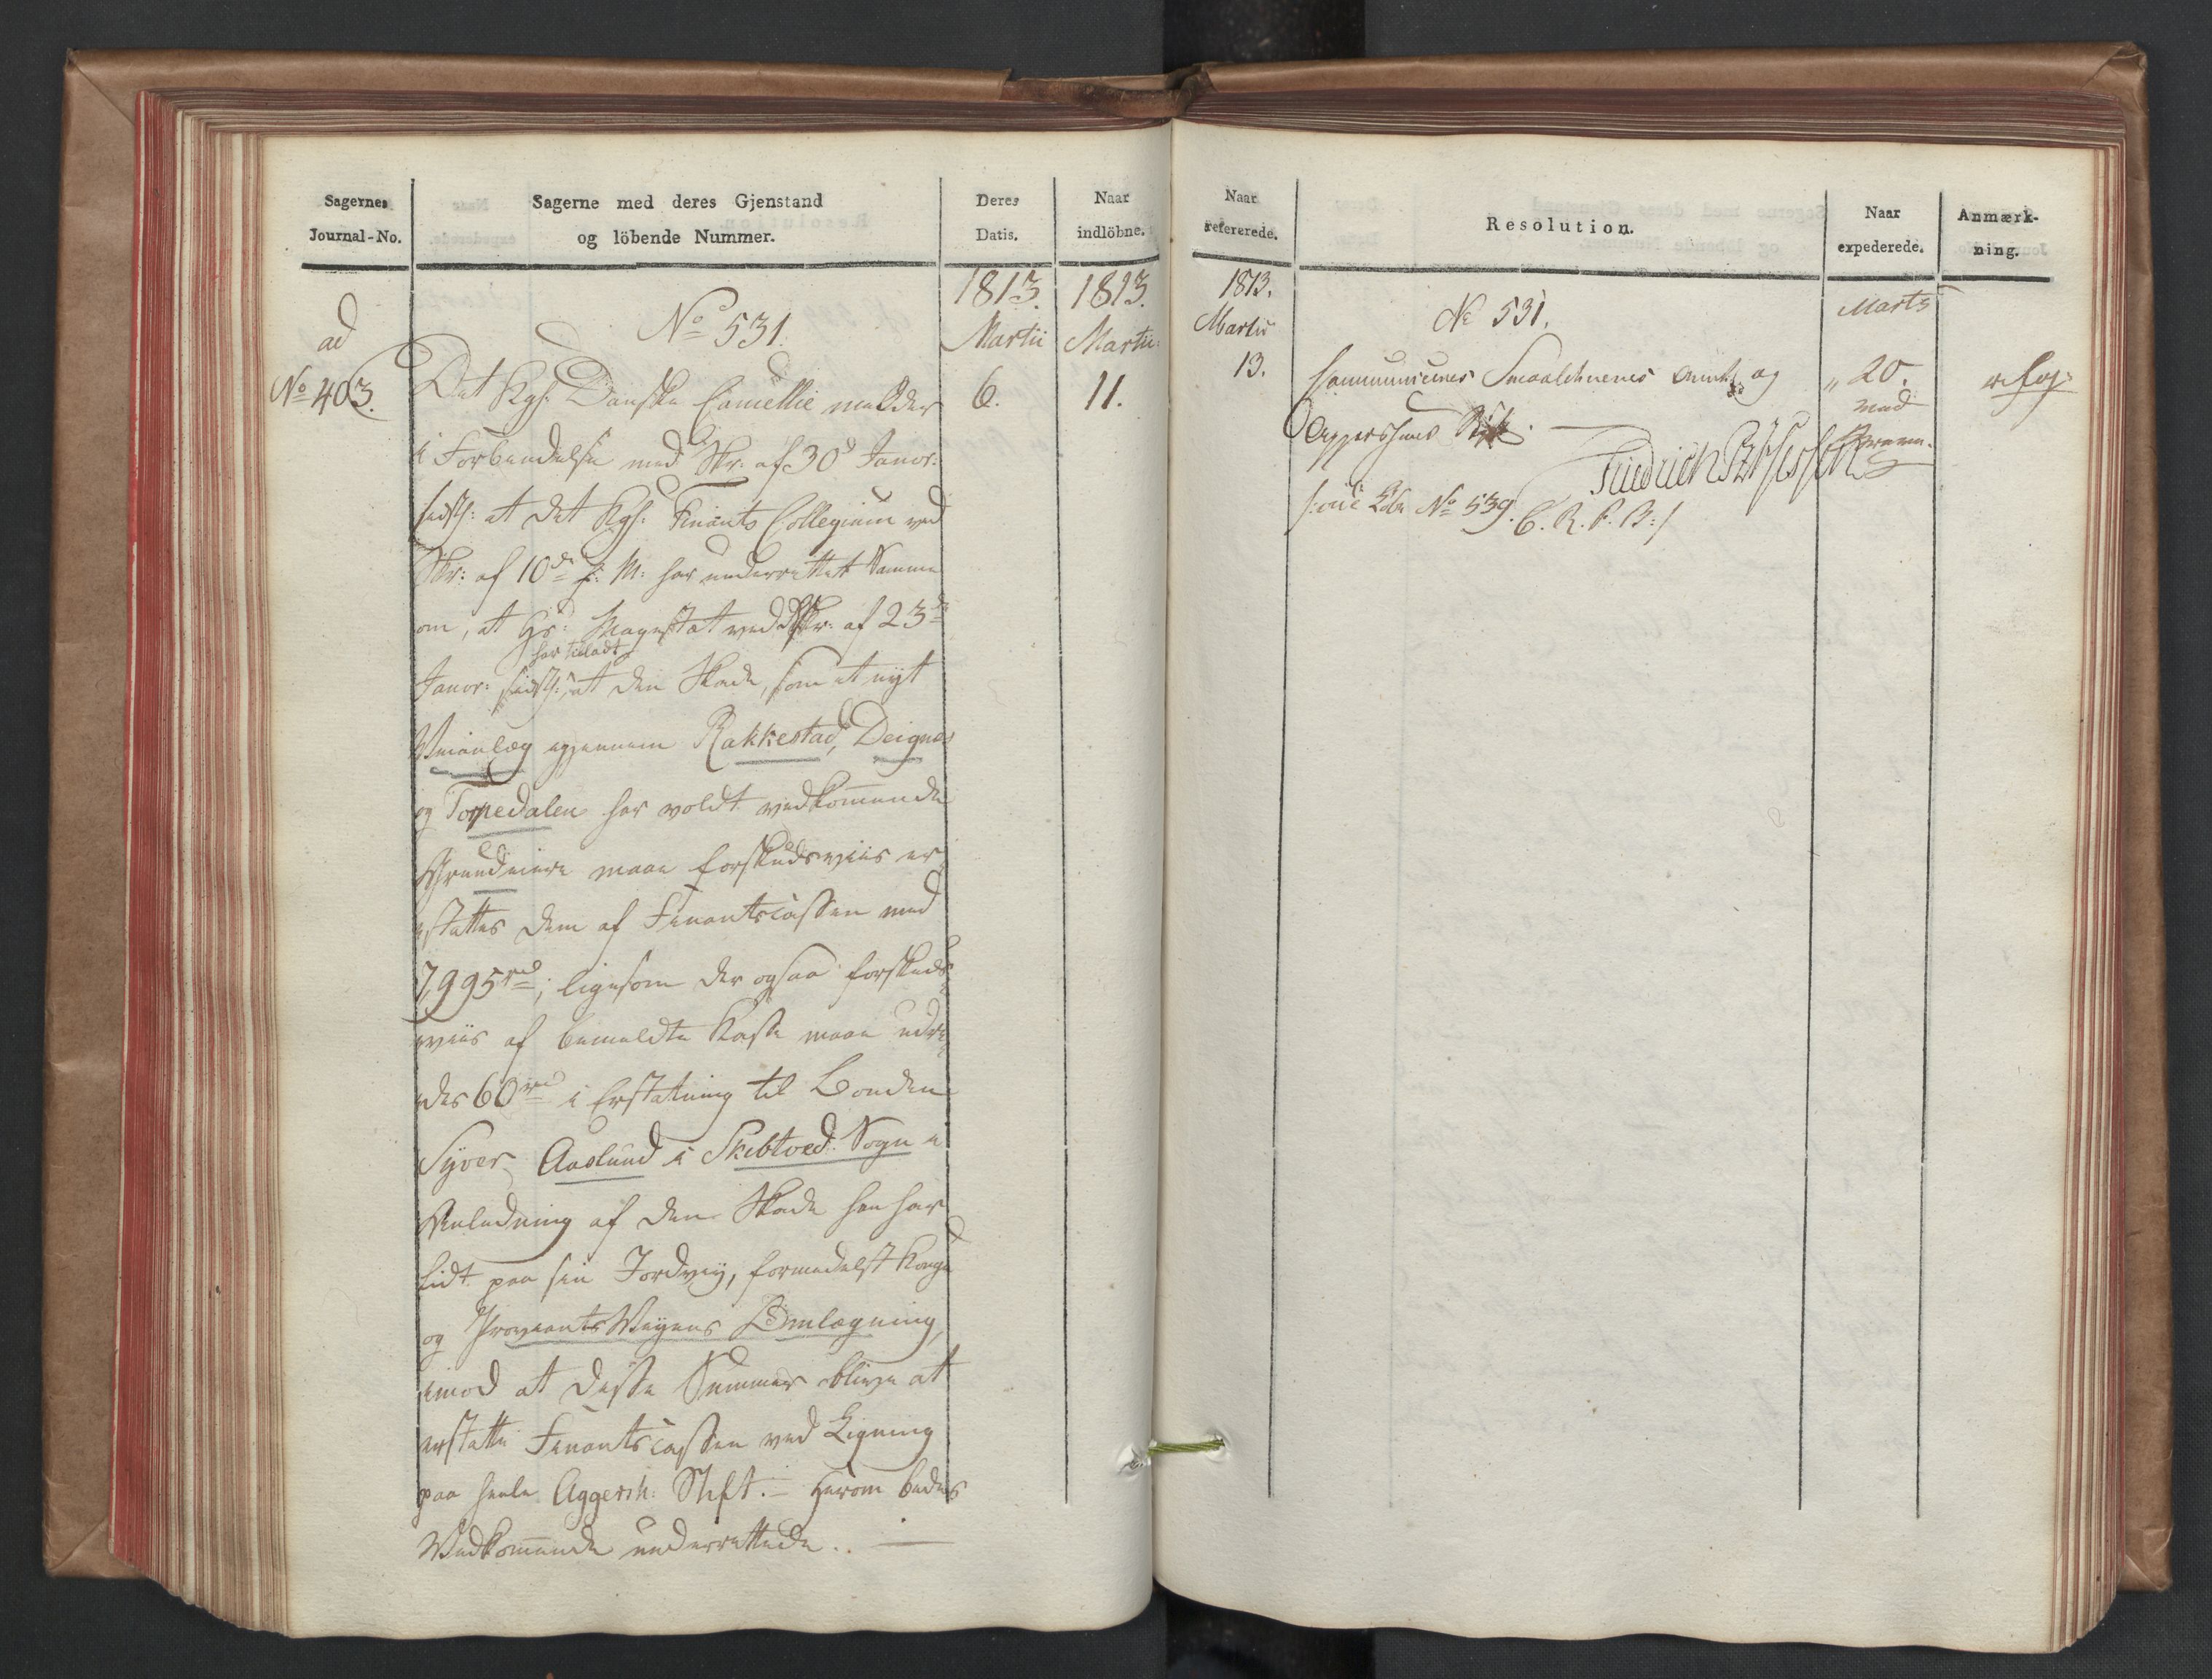 Sagernes
Journal-No.
Sagerne med deres Gjenstand
og löbende Nummer.
Deres
Datis.
Naar
indlöbne.
ad
No 403.
1813.
Martii
6.
1813.
Martii
11.
No 531.
Det Kgl. Danske Cancellie melder
i Forbindelse med Skr. af 30d Janvr:
sidstl: at det Kgl: Finants Collegium ved
Skr: af 10de f: M: har underrettet Samme
om, at Hs: Mayestæt ved Skr. af 23de
har tilladt
Janvr: sidstl:, at den Skade, som et nyt
Veianlæg igjennem Rakkestad, Deignes
og Torpedalen har voldt vedkommende
Grundeiere maae forskudsviis er
stattes dem af Finantscassen med
7,995 rd; ligesom der ogsaa forskuds
viis af bemeldte Kasse maae udre
des 60 rd i Erstatning til Bonden
Syver Aaslund i Skibtved Sogn i
Anledning af den Skade han har
lidt paa sin Jordvey, formedelst Konge
og Proviants Veyens Omlægning,
imod at disse Summer blive at
erstatte Finantscassen ved Ligning
paa heele Aggersh: Stift. – Herom bedes
Vedkommende underrettede. –
Naar
refererede.
Resolution.
Naar
expederede.
Anmærk-
ning.
1813.
Martii
13.
No 531.
Communiceres Smaalehnenes Amt og
Aggershuus Stift.
Friedrich
/: vide Lbr No 539. C. R. P. B:/
Marts
" 20.
med